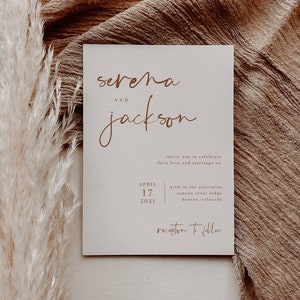 serena
AND
jackson
invite you to celebrate
their love and marriage on
APRIL
17
2021
in the afternoon
canyon river lodge
denver, colorado
reception to follow